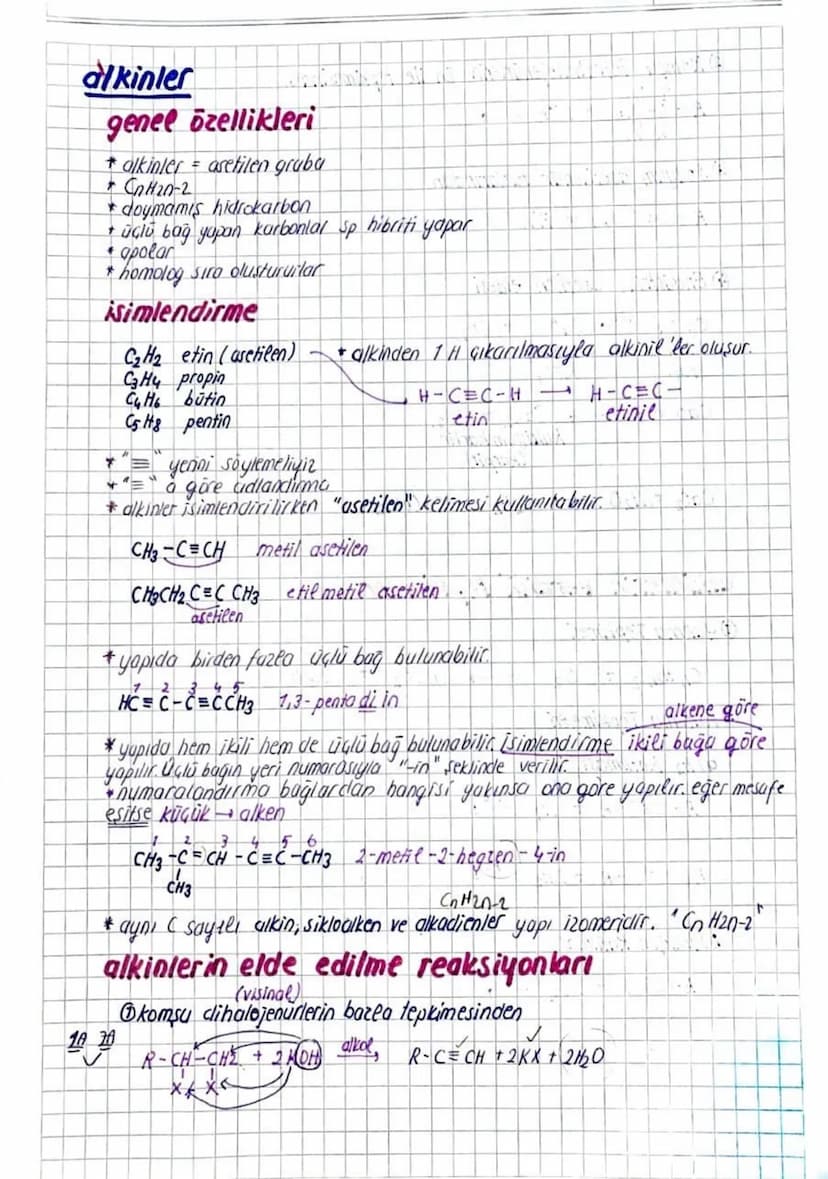 alkinler
genel özellikleri
* alkinler = asetilen grubu
* CnH2n-2
* doymamış hidrokarbon
* üçlü bağ yapan karbonlar sp hibriti yapar
* apolar
* homolog sıra oluştururlar
isimlendirme
C2H2 etin (asetilen) * alkinden 1 H çıkarılmasıyla alkinil'ler oluşur.
C3H4 propin
C4H6 bütin H-C≡C-H → H-C≡C-
C5H8 pentin etin etinil
* "≡" yerini söylemeliyiz
* "≡" a göre adlandırma
* alkinler isimlendirilirken "asetilen" kelimesi kullanılabilir.
CH3-C≡CH metil asetilen
CH3CH2C≡C CH3 etil metil asetilen
asetilen
* yapıda birden fazla üçlü bağ bulunabilir.
1 2 3 4 5
HC≡C-C≡CCH3 1,3-pentadiin
alkene göre
* yapıda hem ikili hem de üçlü bağ bulunabilir. İsimlendirme ikili bağa göre
yapılır. Üçlü bağın yeri numarasıyla "-in" şeklinde verilir.
* numaralandırma bağlardan hangisi yakınsa ona göre yapılır. eğer mesafe
eşitse küçük → alken
1 2 3 4 5 6
CH3-C=CH-C≡C-CH3 2-metil-2-hegzen-4-in
CH3
CnH2n-2
* aynı C sayılı alkin, sikloalken ve alkadienler yapı izomeridir. "CnH2n-2"
alkinlerin elde edilme reaksiyonları
(visinal)
① komşu dihalojenürlerin bazla tepkimesinden
1A 7A R-CH-CH2 + 2KOH alkol, R-C≡CH + 2KX + 2H2O
X X